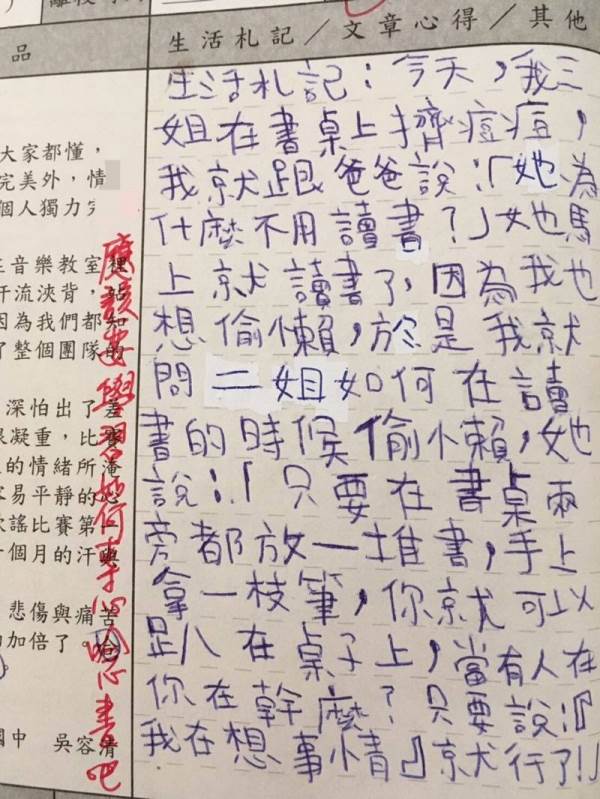 品
大家都懂，
完美外，情
個人獨力
音樂教室裡
汗流浹背，站
因為我們都知
了整個團隊的
深怕出了差
很凝重，比賽
的情緒所淹
容易平靜的心
歌謠比賽第一
個月的汗與
悲傷與痛苦
加倍了。
國中 吳容清
應該要學習如何專心唸書吧
生活札記／文章心得／其他
生活札記：今天，我三
姐在書桌上擠痘痘，
我就跟爸爸說：「她為
什麼不用讀書？」她馬
上就讀書了，因為我也
想偷懶，於是我就
問二姐如何在讀
書的時候偷懶，她
說：「只要在書桌兩
旁都放一堆書，手上
拿一枝筆，你就可以
趴在桌子上，當有人在
你在幹麼？只要說：『
我在想事情』就行了！」